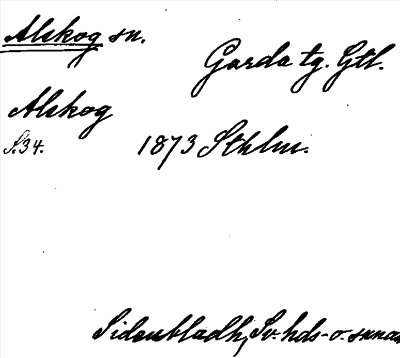 Alskog sn.
Garda tg. Gtl.
Alskog
S. 34.
1873 Sthlm.
Sidenbladh, Sv. hds- o. sknar